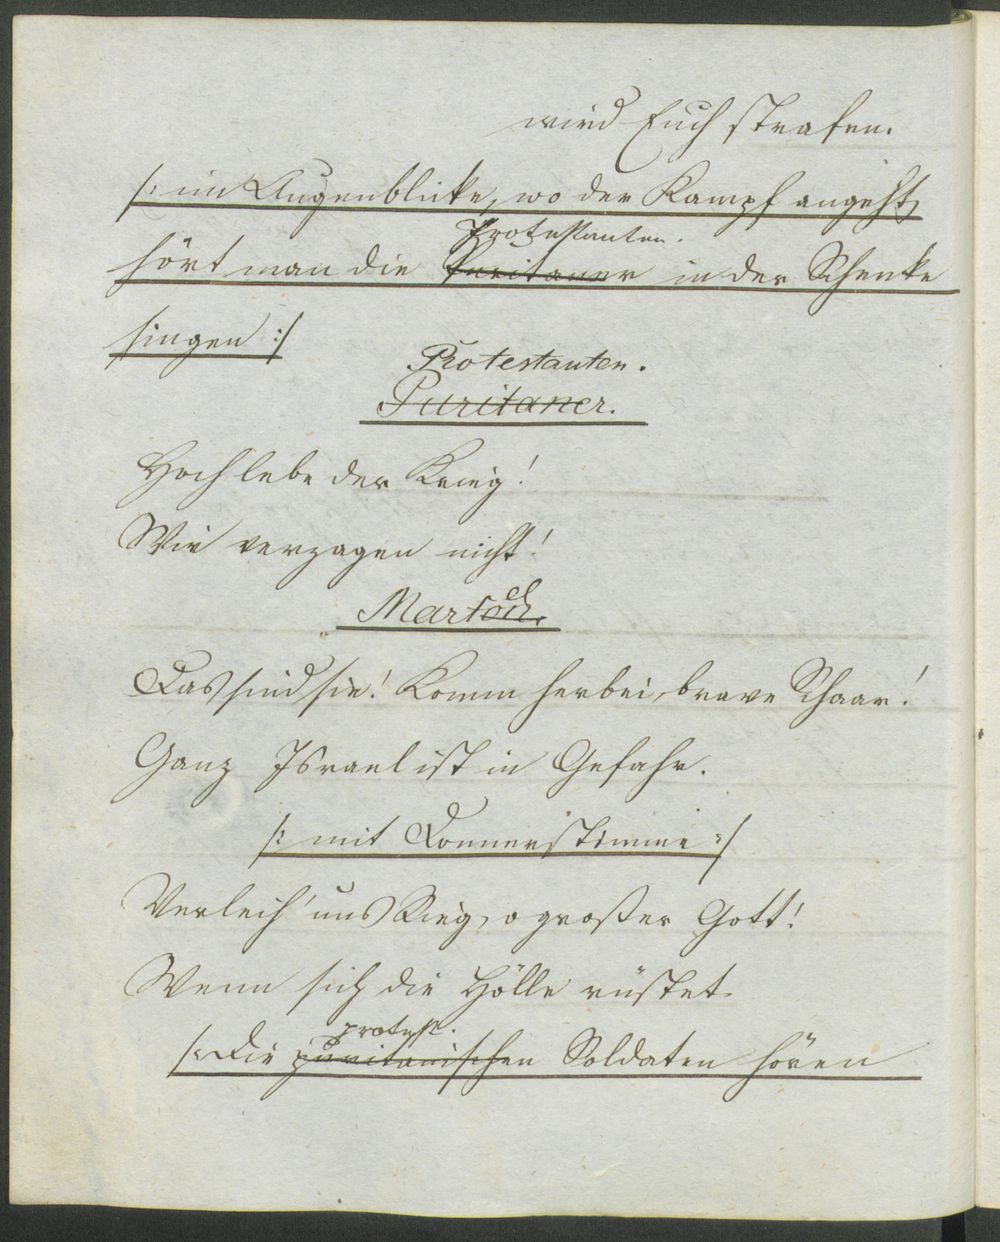 wird Euch strafen.
/: im Augenblicke, wo der Kampf angeht,
Protestanten.
hört man die Puritaner in der Schenke
singen :/
Protestanten.
Puritaner.
Hoch lebe der Krieg!
Wir verzagen nicht!
Marfoch.
Das sind sie! Komm herbei, brave Schaar!
Ganz Israel ist in Gefahr.
/: mit Donnerstimme :/
Verleih' uns Sieg, o großer Gott!
Wenn sich die Hölle rüstet
protest.
/: die puritanischen Soldaten hören